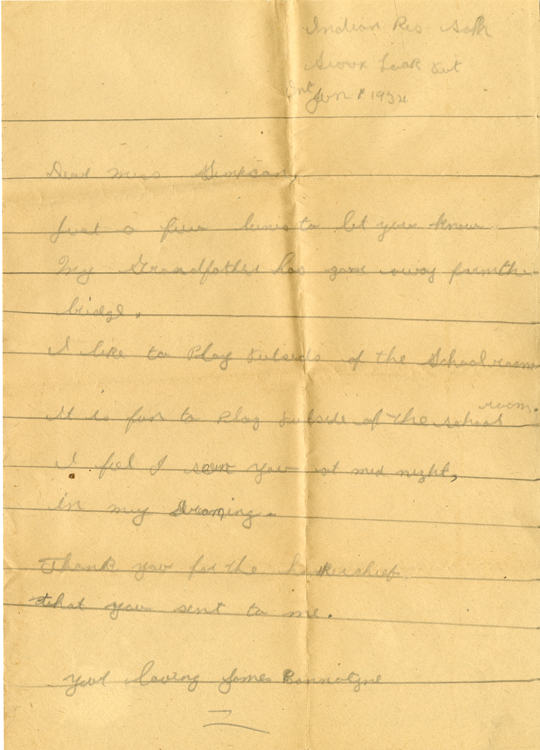 Indian Res Sch
Sioux Look Out
Ont Jun 1 1934
Dear Miss Simpson,
Just a few lines to let you know
My Grandfather has gone away form the
bridge.
I like to Play outside of the School room
It is fun to Play outside of the school room.
I feel I seen you at mid night,
in my Dreaming.
Thank you for the hankerchief
that you sent to me.
your loving James Bannatyne